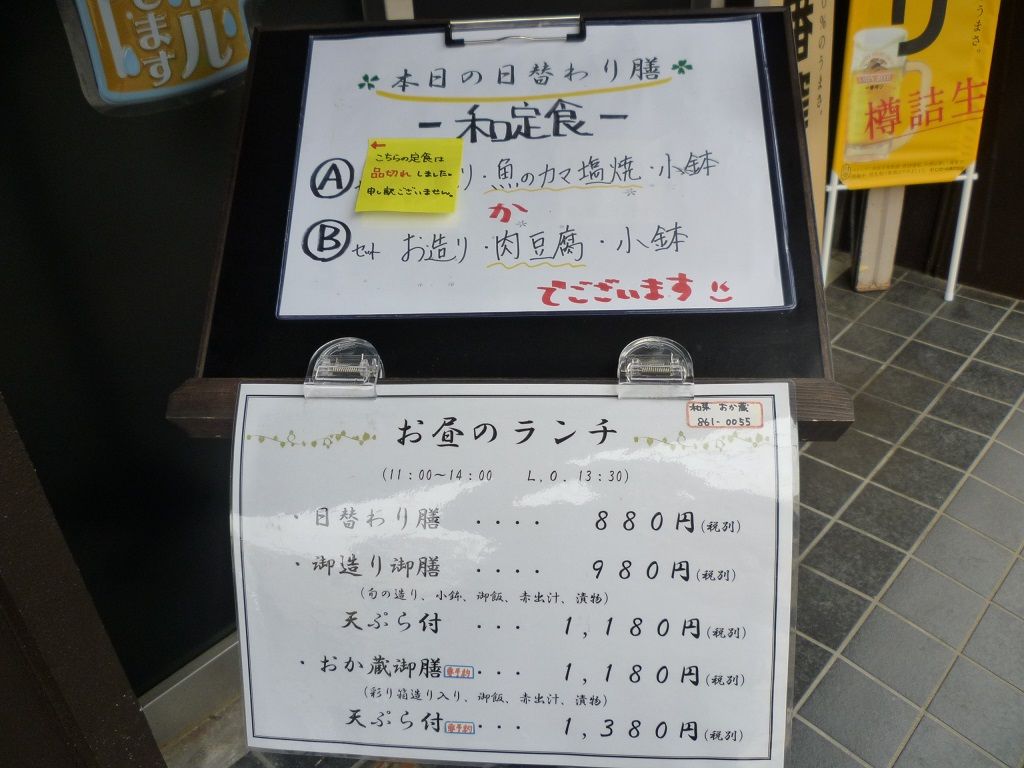 します
ル
うまさ。
％のうまさ。
樽詰生
本日の日替わり膳
－和定食－
←
こちらの定食は
品切れしました。
申し訳ございません。
Ⓐ り・魚のカマ塩焼・小鉢
か
Ⓑ セット お造り・肉豆腐・小鉢
でございます
和菜 おか蔵
861-0055
お昼のランチ
(11:00～14:00 L.O.13:30)
・日替わり膳 ・・・・ 880円(税別)
・御造り御膳 ・・・・ 980円(税別)
(旬の造り、小鉢、御飯、赤出汁、漬物)
天ぷら付 ・・・ 1,180円(税別)
・おか蔵御膳 要予約 ・・・ 1,180円(税別)
(彩り箱造り入り、御飯、赤出汁、漬物)
天ぷら付 要予約 ・・・ 1,380円(税別)